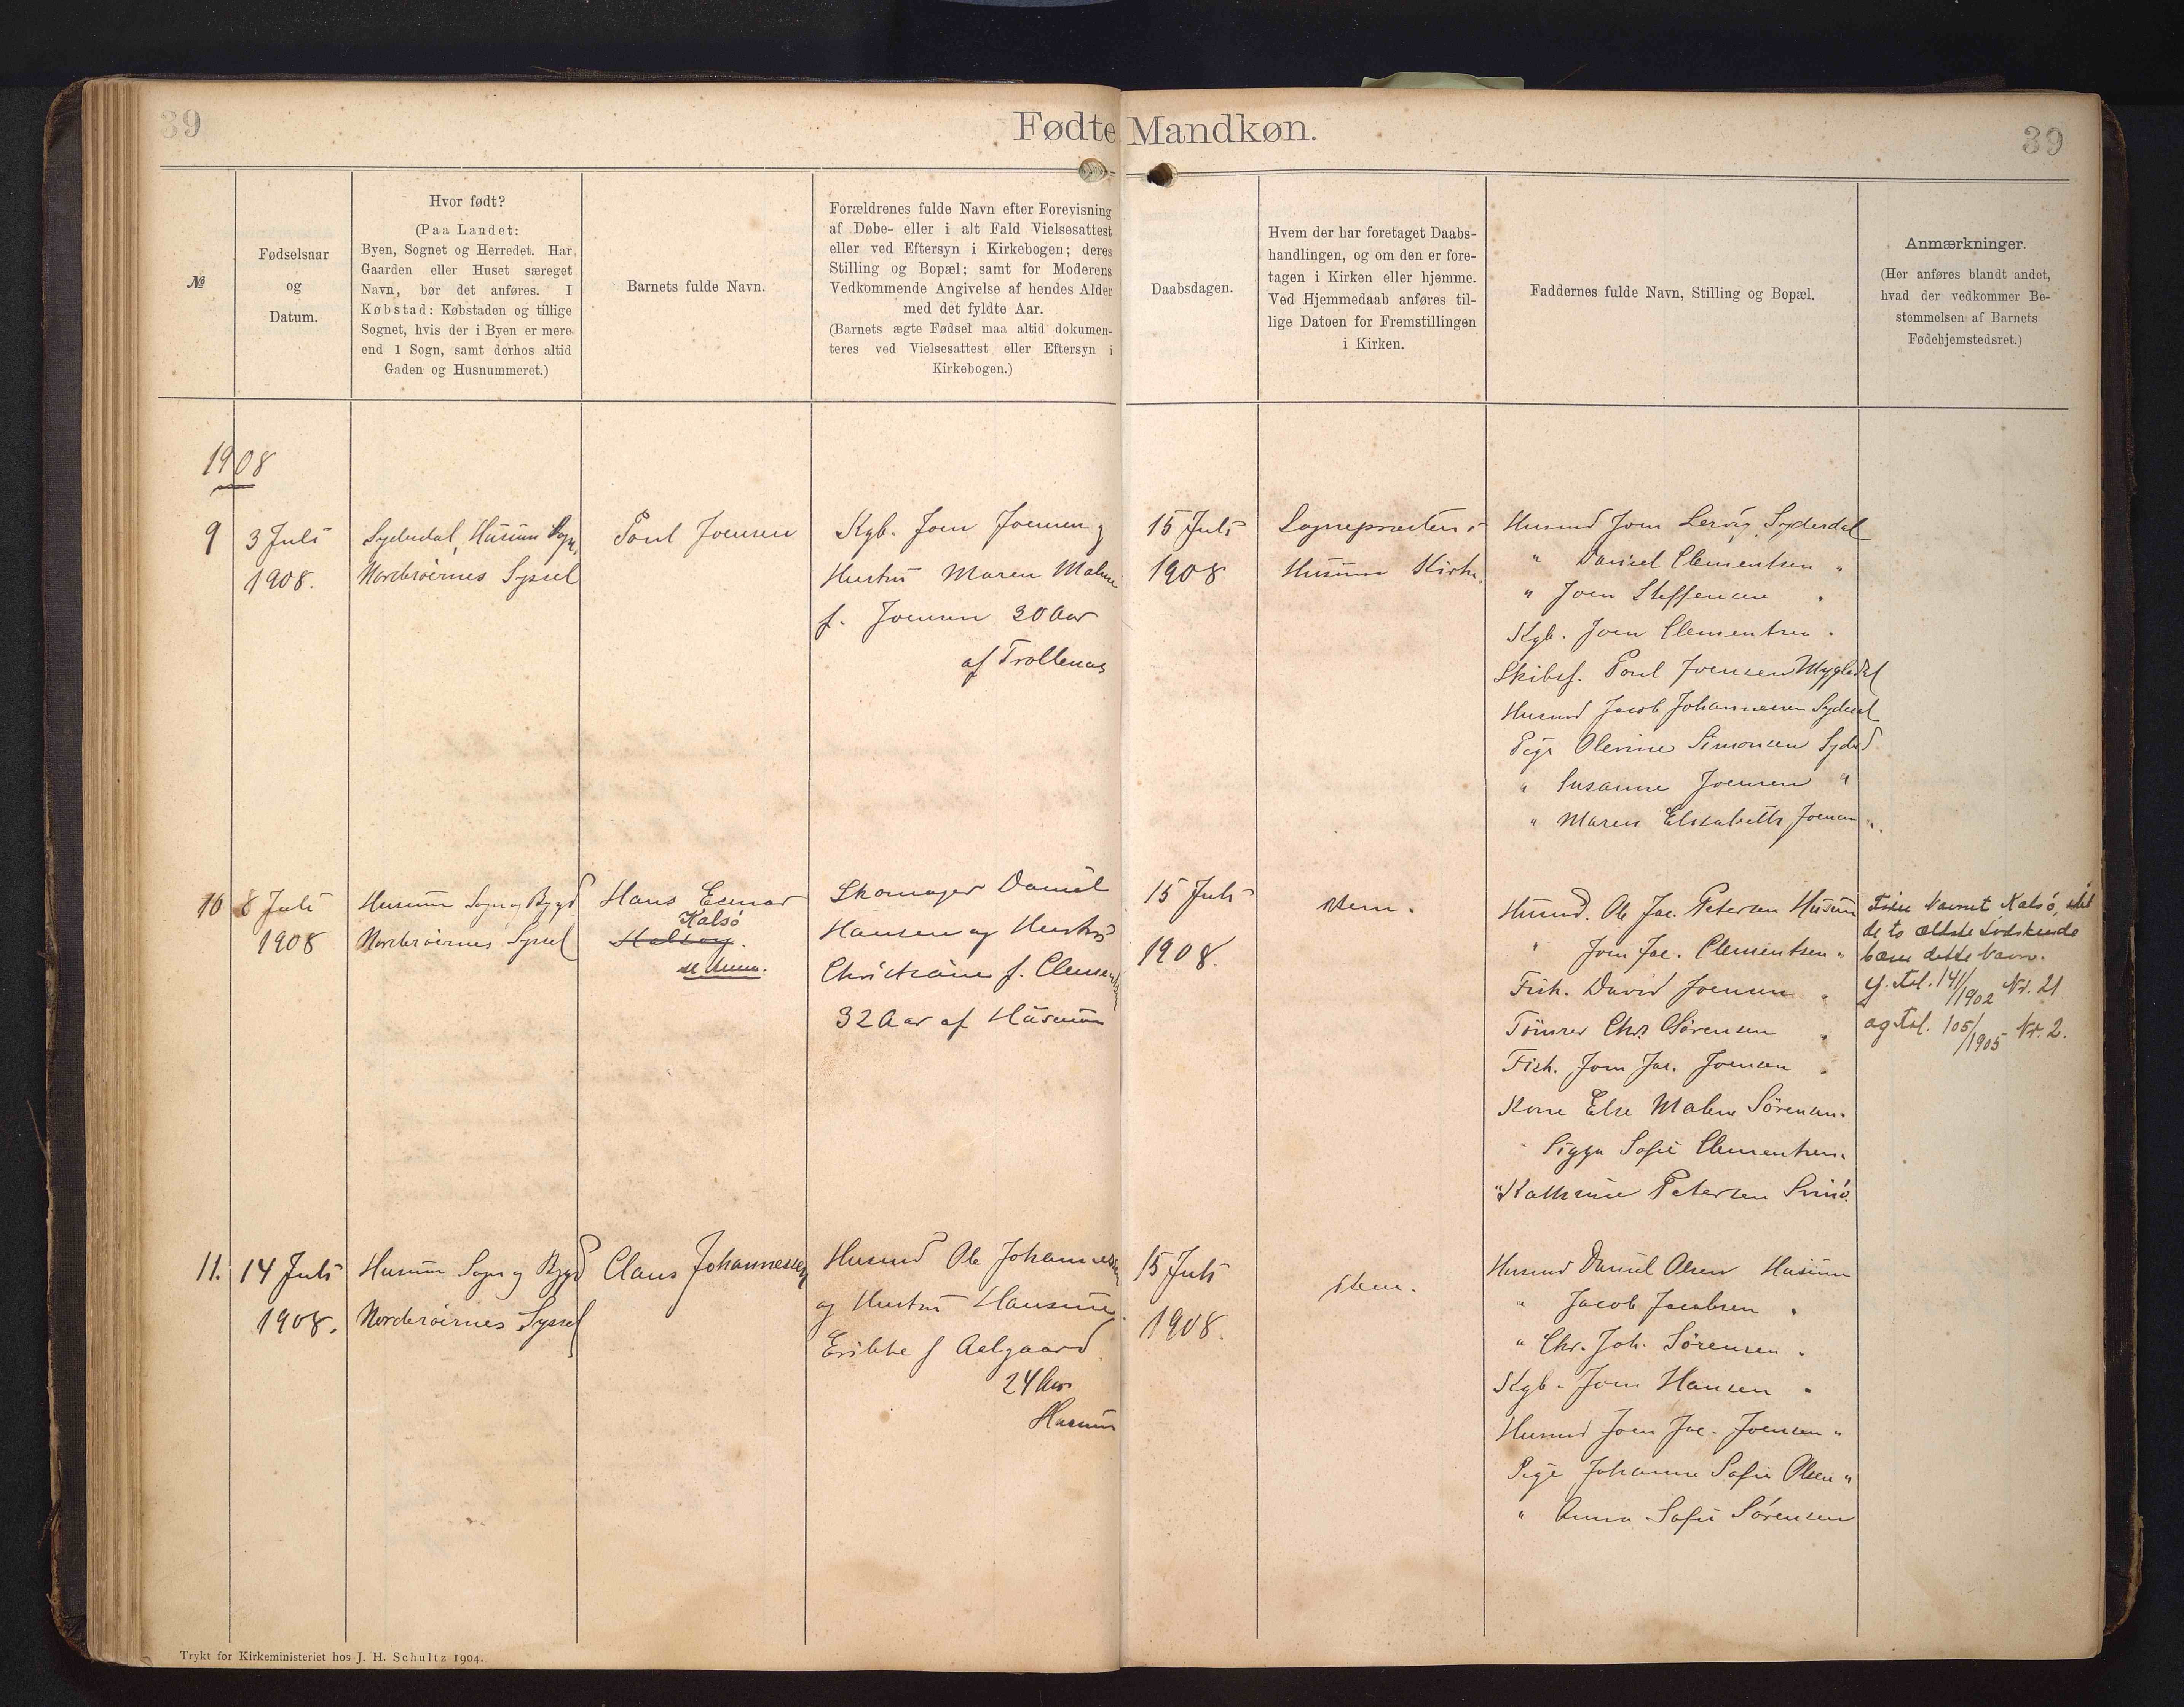 39
Fødte Mandkøn.
39
№
Fødselsaar
og
Datum.
Hvor født?
(Paa Landet:
Byen, Sognet og Herredet. Har
Gaarden eller Huset særeget
Navn, bør det anføres. I
Købstad: Købstaden og tillige
Sognet, hvis der i Byen er mere
end 1 Sogn, samt derhos altid
Gaden og Husnummeret.)
Barnets fulde Navn.
Forældrenes fulde Navn efter Forevisning
af Døbe- eller i alt Fald Vielsesattest
eller ved Eftersyn i Kirkebogen; deres
Stilling og Bopæl; samt for Moderens
Vedkommende Angivelse af hendes Alder
med det fyldte Aar.
(Barnets ægte Fødsel maa altid dokumen-
teres ved Vielsesattest eller Eftersyn i
Kirkebogen.)
Daabsdagen.
Hvem der har foretaget Daabs-
handlingen, og om den er fore-
tagen i Kirken eller hjemme.
Ved Hjemmedaab anføres til-
lige Datoen for Fremstillingen
i Kirken.
Faddernes fulde Navn, Stilling og Bopæl.
Anmærkninger.
(Her anføres blandt andet,
hvad der vedkommer Be-
stemmelsen af Barnets
Fødehjemstedsret.)
1908
9
3 Juli
1908.
Syderdal, Husum Sogn,
Norderöernes Syssel
Poul Joensen
Kgb. Joen Joensen og
Hustru Maren Malene
f. Joensen 30 Aar
af Trollenæs
15 Juli
1908
Sognepræsten i
Husum Kirke.
Husmd Joen Lervig, Syderdal
" Daniel Clementsen "
" Joen Steffensen "
Kgb. Joen Clementsen "
Skibsf. Poul Joensen Mygledal
Husmd Jacob Johannesen Syderdal
Pige Olevine Simonsen Syderd
" Susanne Joensen "
" Maren Elisabeth Joensen "
10
8 Juli
1908
Husum Sogn og Bygd
Norderöernes Syssel
Hans Einar
Kalsö
Kalsoy.
se Anm.
Skomager Daniel
Hansen og Hustru
Christiane f. Clementsen
32 Aar af Husum
15 Juli
1908.
Idem.
Husmd. Ole Jac. Petersen Husum
" Joen Jac. Clementsen "
Fisk. David Joensen "
Tömrer Chr. Sörensen "
Fisk. Joen Jac. Joensen "
Kone Else Malene Sörensen "
" Sigga Sofie Clementsen "
" Kathrine Petersen Svinö.
Navnet Kalsö, idet
de to ældste Södskende
bære dette Navn.
cf. Fol. 141/1902 Nr. 21
og Fol. 105/1905 Nr. 2.
11.
14 Juli
1908.
Husum Sogn og Bygd
Norderöernes Syssel
Claus Johannesen
Husmd Ole Johannesen
og Hustru Hansine
Erikke f Aelgaard
24 Aar
Husum
15 Juli
1908.
Idem.
Husmd Daniel Olsen Husum
" Jacob Jacobsen "
" Chr. Joh. Sörensen "
Kgb. Joen Hansen "
Husmd Joen Jac. Joensen "
Pige Johanne Sofie Olsen "
" Anna Sofie Sörensen
Trykt for Kirkeministeriet hos J. H. Schultz 1904.